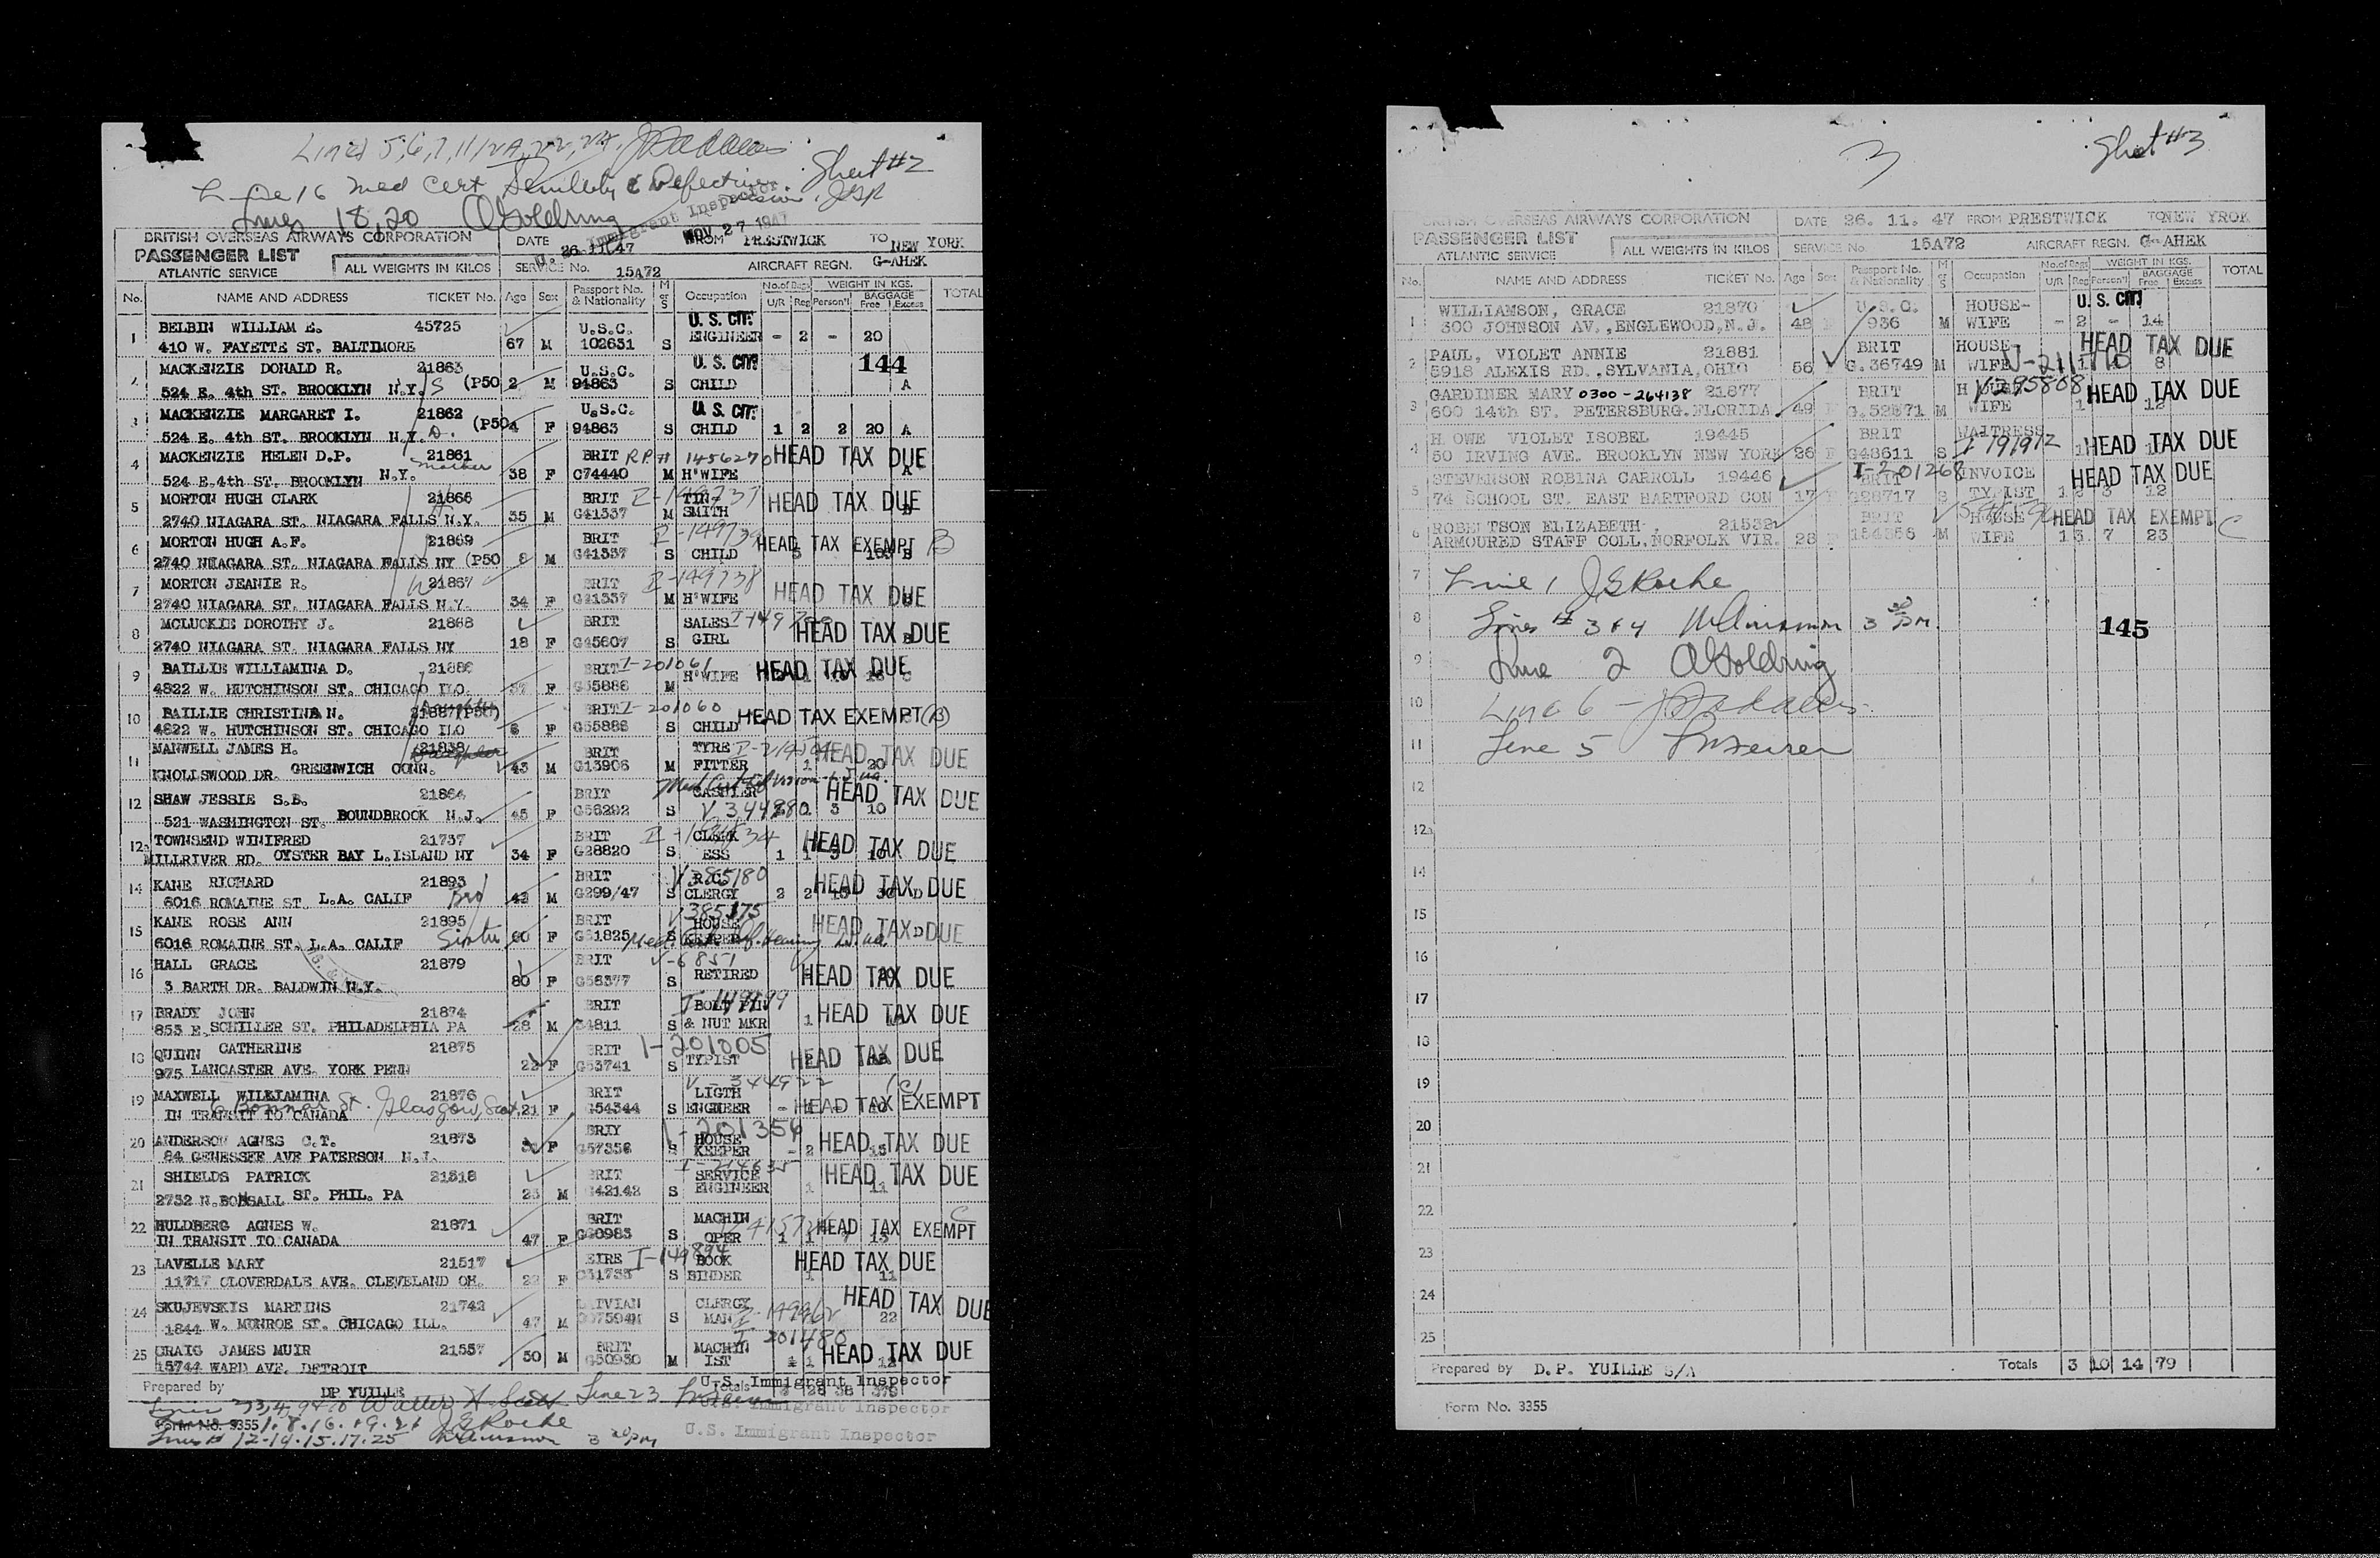 Sheet #2
Line 16 Med Cert Senility & Defective Vision. JGR
Lines 18, 20 A Goldring
Immigrant Inspector
NOV 27 1947
BRITISH OVERSEAS AIRWAYS CORPORATION
PASSENGER LIST
ATLANTIC SERVICE
ALL WEIGHTS IN KILOS
DATE 26.11.47 FROM PRESTWICK TO NEW YORK
SERVICE No. 15A72 AIRCRAFT REGN. G-AHEK
No. NAME AND ADDRESS TICKET No. Age Sex Passport No. & Nationality M or S Occupation No.of Bags U/R Reg WEIGHT IN KGS. Person'l BAGGAGE Free Excess TOTAL
1 BELBIN WILLIAM E. 45725 U.S.C. U.S. CIT.
410 W. FAYETTE ST. BALTIMORE 67 M 102631 S ENGINEER - 2 - 20
2 MACKENZIE DONALD R. 21863 U.S.C. U.S. CIT. 144
524 E. 4th ST. BROOKLYN N.Y. S (P50 2 M 94863 S CHILD A
3 MACKENZIE MARGARET I. 21862 U.S.C. U.S. CIT.
524 E. 4th ST. BROOKLYN N.Y. D. (P50 4 F 94863 S CHILD 1 2 2 20 A
4 MACKENZIE HELEN D.P. 21861 BRIT R.P.# 1456270 HEAD TAX DUE
524 E.4th ST. BROOKLYN N.Y. mother 38 F C74440 M H'WIFE A
5 MORTON HUGH CLARK 21866 BRIT I-149737 TIN HEAD TAX DUE
2740 NIAGARA ST. NIAGARA FALLS N.Y. 35 M G41337 M SMITH
6 MORTON HUGH A.F. 21869 BRIT I-149739 HEAD TAX EXEMPT B
2740 NIAGARA ST. NIAGARA FALLS NY (P50 8 M G41337 S CHILD
7 MORTON JEANIE R. 21867 BRIT I-149738 HEAD TAX DUE
2740 NIAGARA ST. NIAGARA FALLS N.Y. 34 F G41337 M H'WIFE
8 MCLUCKIE DOROTHY J. 21868 BRIT SALES HEAD TAX DUE
2740 NIAGARA ST. NIAGARA FALLS NY 18 F G45607 S GIRL
9 BAILLIE WILLIAMINA D. 21886 BRIT I-201061 HEAD TAX DUE
4822 W. HUTCHINSON ST. CHICAGO ILO 37 F G55886 M H'WIFE
10 BAILLIE CHRISTINA N. 21887(P50) BRIT I-201060 HEAD TAX EXEMPT (B)
4822 W. HUTCHINSON ST. CHICAGO ILO 6 F G55886 S CHILD
11 MANWELL JAMES H. 21838 BRIT TYRE HEAD TAX DUE
KNOLLSWOOD DR. GREENWICH CONN. 43 M G13906 M FITTER 1 20
12 SHAW JESSIE S.B. 21864 BRIT CASHIER HEAD TAX DUE
521 WASHINGTON ST. BOUNDBROOK N.J. 45 F G56292 S V 344980 3 10
12a TOWNSEND WINIFRED 21737 BRIT CLERK HEAD TAX DUE
MILLRIVER RD. OYSTER BAY L.ISLAND NY 34 F G28820 S ESS 1 1 3 10
14 KANE RICHARD 21893 BRIT V385180 R.C. HEAD TAX DUE
6016 ROMAINE ST. L.A. CALIF Bro 42 M G299/47 S CLERGY 2 2 15 30 D
15 KANE ROSE ANN 21895 BRIT V385175 HOUSE HEAD TAX DUE
6016 ROMAINE ST. L.A. CALIF Sister 60 F G61825 S KEEPER D
16 HALL GRACE 21879 BRIT V-6851 HEAD TAX DUE
3 BARTH DR. BALDWIN N.Y. 80 F G56377 S RETIRED
17 BRADY JOHN 21874 BRIT BOLT PIN HEAD TAX DUE
853 E. SCHILLER ST. PHILADELPHIA PA 28 M 34811 S & NUT MKR 1
18 QUINN CATHERINE 21875 BRIT I-201005 HEAD TAX DUE
975 LANCASTER AVE. YORK PENN 22 F G53741 S TYPIST
19 MAXWELL WILLIAMINA 21876 BRIT V-344922 LIGTH (C) HEAD TAX EXEMPT
IN TRANSIT TO CANADA St. Glasgow, Scot. 21 F G54344 S ENGNEER
20 ANDERSON AGNES C.T. 21873 BRIY I-201356 HOUSE HEAD TAX DUE
84 GENESSEE AVE PATERSON N.J. F G57356 S KEEPER - 2 15
21 SHIELDS PATRICK 21518 BRIT I-214635 SERVICE HEAD TAX DUE
2732 N.BONSALL ST. PHIL. PA 23 M G42142 S ENGINEER 1 11
22 HULDBERG AGNES W. 21871 BRIT MACHIN HEAD TAX EXEMPT C
IN TRANSIT TO CANADA 47 F G60983 S OPER 1 1 7 15
23 LAVELLE MARY 21517 EIRE I-149894 BOOK HEAD TAX DUE
11717 CLOVERDALE AVE. CLEVELAND OH. 22 F C31733 S BINDER 1 11
24 SKUJEVSKIS MARTINS 21742 CLERGY HEAD TAX DUE
1844 W. MONROE ST. CHICAGO ILL. 47 M S MAN I-149962 22
25 CRAIG JAMES MUIR 21557 BRIT I 201480 MACHYN HEAD TAX DUE
15744 WARD AVE. DETROIT 50 M G50930 M IST 1 12
Prepared by DP YUILLE Totals
U.S. Immigrant Inspector
Walter H. Scott Line 23
Immigrant Inspector
Form No. 3355 1.8.16.19.21 JG Roche
Lines # 12-14.15.17.25 3 30 PM
U.S. Immigrant Inspector
3
Sheet #3
BRITISH OVERSEAS AIRWAYS CORPORATION
PASSENGER LIST
ATLANTIC SERVICE
ALL WEIGHTS IN KILOS
DATE 26. 11. 47 FROM PRESTWICK TO NEW YROK
SERVICE No. 15A72 AIRCRAFT REGN. G-AHEK
No. NAME AND ADDRESS TICKET No. Age Sex Passport No. & Nationality M or S Occupation No.of Bags U/R Reg WEIGHT IN KGS. Person'l BAGGAGE Free Excess TOTAL
1 WILLIAMSON, GRACE 21870 U.S.C. HOUSE- U.S. CIT.
300 JOHNSON AV.,ENGLEWOOD,N.J. 48 F 936 M WIFE - 2 - 14
2 PAUL, VIOLET ANNIE 21881 BRIT HOUSE HEAD TAX DUE
5918 ALEXIS RD.,SYLVANIA,OHIO 56 F G.36749 M WIFE 8
3 GARDINER MARY 0300-264138 21877 BRIT V295868 HEAD TAX DUE
600 14th ST. PETERSBURG.FLORIDA 49 F G.52871 M WIFE 1 12
4 HOWE VIOLET ISOBEL 19445 BRIT WAITRESS HEAD TAX DUE
50 IRVING AVE. BROOKLYN NEW YORK 26 F G48611 S I-191912 1
5 STEVENSON ROBINA CARROLL 19446 BRIT I-201268 INVOICE HEAD TAX DUE
74 SCHOOL ST. EAST HARTFORD CON 17 F G28717 S TYPIST 1 2 3 12
6 ROBERTSON ELIZABETH 21532 BRIT HOUSE HEAD TAX EXEMPT
ARMOURED STAFF COLL.NORFOLK VIR. 28 F 154386 M WIFE 1 3 7 23 C
7 Line 1 JG Roche
8 Lines # 3 & 4 3 30 PM. 145
9 Line 2 A Goldring
10 Line 6 -
11 Line 5
12
12a
14
15
16
17
18
19
20
21
22
23
24
25
Prepared by D.P. YUILLE S/A Totals 3 10 14 79
Form No. 3355